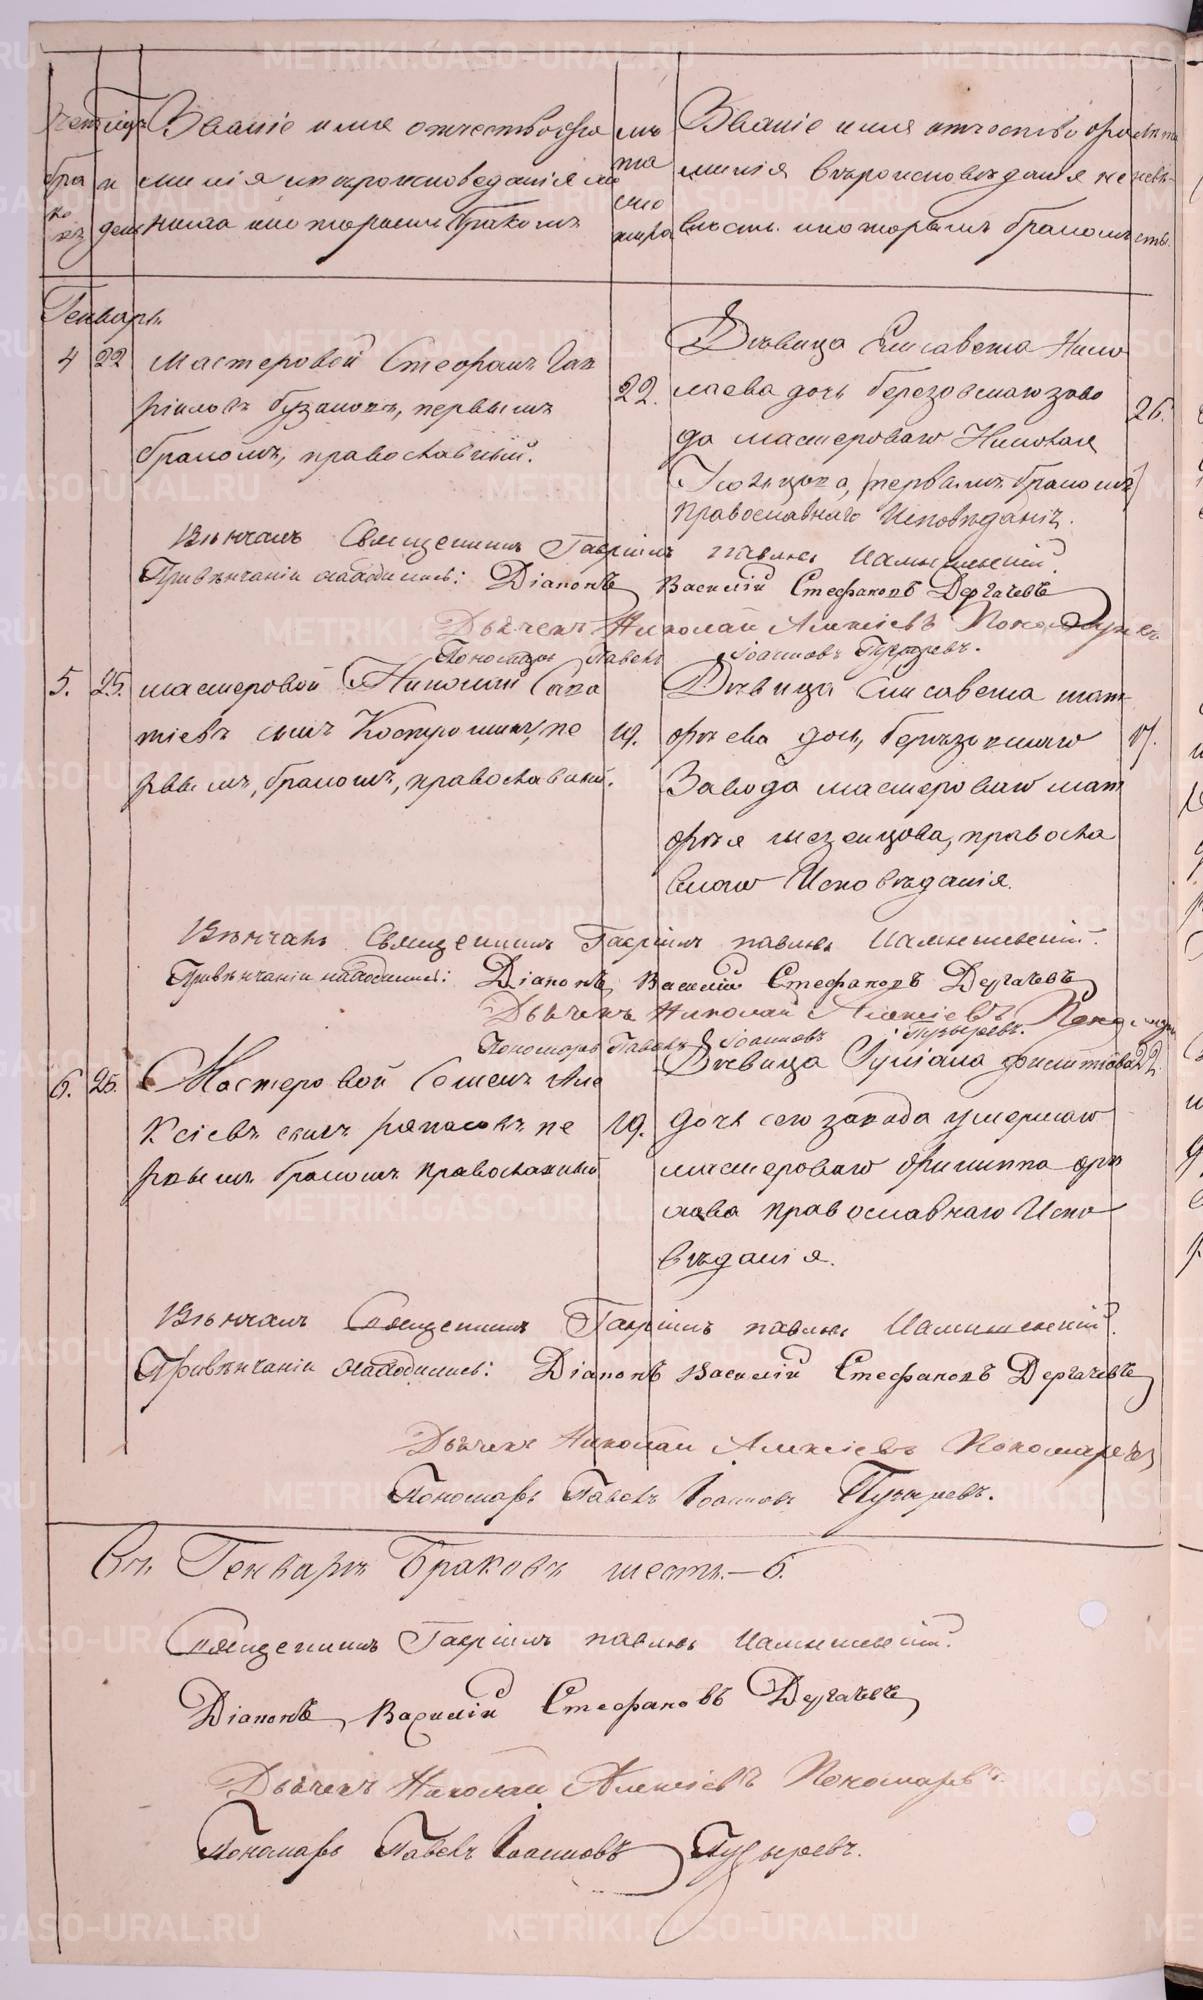 Званіе имя отчество и фа
милія и вѣроисповеданія же
ниха и которымъ бракомъ
лѣ
та
Званіе имя отчество и фа
милія вѣроисповѣданія не
вѣсты и которымъ бракомъ
Генварь
4 22 Мастеровой Стефанъ Гав
ріиловъ Бузановъ, первымъ
бракомъ, православный.
22.
Дѣвица Елисавета Нико
лаева дочь березовскаго заво
да мастероваго Николая
первымъ бракомъ
православнаго Исповѣданія.
26.
Вѣнчалъ Священникъ Гавріилъ Павловъ
При вѣнчаніи находились: Діаконъ Василій Стефановъ Дергачевъ
Дьячекъ Николай Алексіевъ Пономаревъ
Пономарь Павелъ Іоанновъ Пузыревъ.
5. 25. мастеровой Николай Сава
тіевъ сынъ Костромин, пе
рвымъ, бракомъ, православный.
19.
Дѣвица Елисавета мат
фѣева дочь, березовскаго
Завода мастероваго мат
фѣя мезенцова, правосла
внаго Исповѣданія.
17.
Вѣнчалъ Священникъ Гавріилъ Павловъ
При вѣнчаніи находились: Діаконъ Василій Стефановъ Дергачевъ
Дьячекъ Николай Алексіевъ Пономаревъ
Пономарь Павелъ Іоанновъ Пузыревъ.
6. 25. Мастеровой Семенъ Але
ксіевъ сынъ пе
рвымъ бракомъ православный
19.
Дѣвица Іуліана филиппова 22.
дочь сего завода умершаго
мастероваго филиппа
православнаго Испо
вѣданія.
Вѣнчалъ Священникъ Гавріилъ Павловъ
При вѣнчаніи находились: Діаконъ Василій Стефановъ Дергачевъ
Дьячекъ Николай Алексіевъ Пономаревъ
Пономарь Павелъ Іоанновъ Пузыревъ.
Въ Генварѣ Браковъ шесть.—6.
Священникъ Гавріилъ Павловъ
Діаконъ Василій Стефановъ Дергачевъ
Дьячекъ Николай Алексіевъ Пономаревъ.
Пономарь Павелъ Іоанновъ Пузыревъ.
METRIKI.GASO-URAL.RU